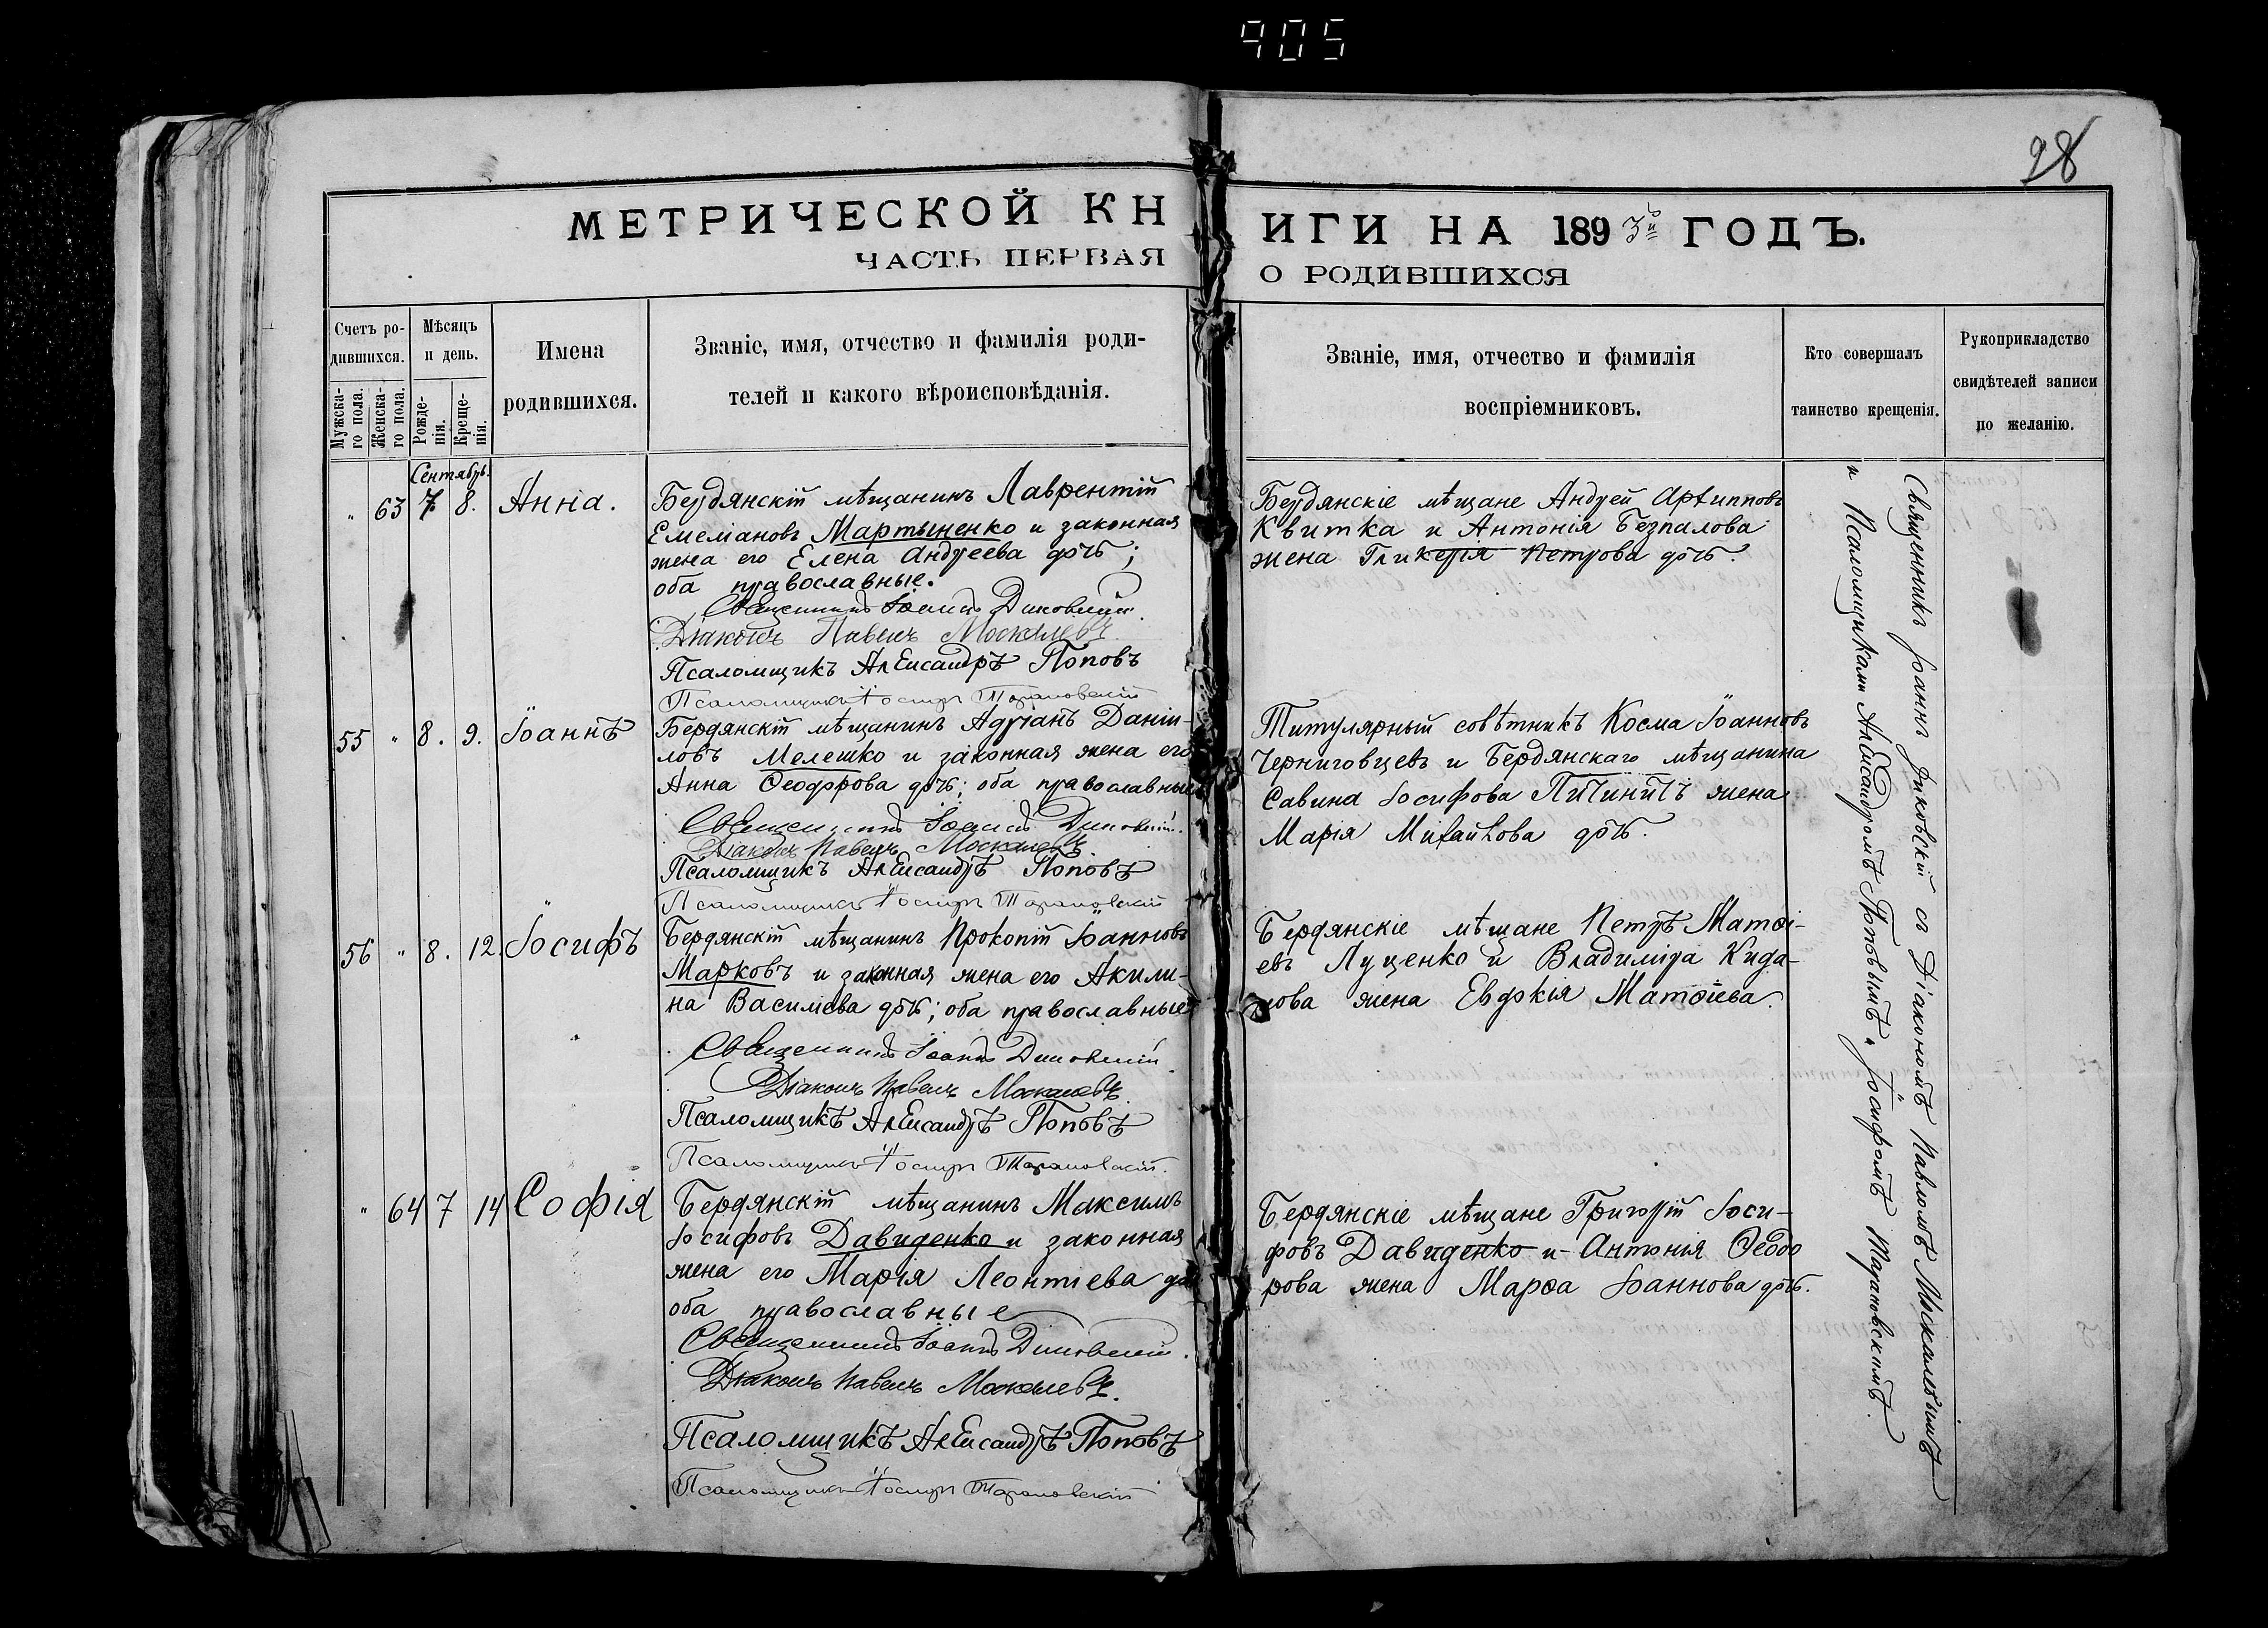 905
28
МЕТРИЧЕСКОЙ КН
ЧАСТЬ ПЕРВАЯ
ИГИ НА 1893й ГОДЪ.
О РОДИВШИХСЯ
Счетъ ро-
дившихся.
Мужска-
го пола.
Женска-
го пола.
Мѣсяцъ
и день.
Рожде-
нія.
Креще-
нія.
Имена
родившихся.
Званіе, имя, отчество и фамилія роди-
телей и какого вѣроисповѣданія.
Званіе, имя, отчество и фамилія
воспріемниковъ.
Кто совершалъ
таинство крещенія.
Рукоприкладство
свидѣтелей записи
по желанію.
Сентябрь.
" 63 7 8. Анна.
Бердянскій мѣщанинъ Лаврентій
Емеліановъ Мартыненко и законная
жена его Елена Андреева дочь;
оба православные.
Священникъ Іоаннъ Диковскій
Діаконъ Павелъ Москалевъ.
Псаломщикъ Александръ Поповъ
Псаломщикъ Іосифъ Тарановскій
Бердянскіе мѣщане Андрей Архипповъ
Квитка и Антонія Безпалова
жена Гликерія Петрова дочь.
55 " 8. 9. Іоаннъ
Бердянскій мѣщанинъ Адріанъ Даніи-
ловъ Мелешко и законная жена его
Анна Ѳеодорова дочь; оба православные
Священникъ Іоаннъ Диковскій.
Діаконъ Павелъ Москалевъ.
Псаломщикъ Александръ Поповъ
Псаломщикъ Іосифъ Тарановскій
Титулярный совѣтникъ Косма Іоанновъ
Черниговцевъ и Бердянскаго мѣщанина
Савина Іосифова жена
Марія Михайлова дочь.
56 " 8. 12. Іосифъ
Бердянскій мѣщанинъ Прокопій Іоанновъ
Марковъ и законная жена его Акили-
на Василіева дочь; оба православные
Священникъ Іоаннъ Диковскій.
Діаконъ Павелъ Москалевъ.
Псаломщикъ Александръ Поповъ
Псаломщикъ Іосифъ Тарановскій.
Бердянскіе мѣщане Петръ Матѳі-
евъ Луценко и Владиміра Кида-
лова жена Матѳіева.
" 64 7 14 Софія
Бердянскій мѣщанинъ Максимъ
Іосифовъ Давиденко и законная
жена его Марія Леонтіева
оба православные
Священникъ Іоаннъ Диковскій.
Діаконъ Павелъ Москалевъ.
Псаломщикъ Александръ Поповъ
Псаломщикъ Іосифъ Тарановскій
Бердянскіе мѣщане Григорій Іоси-
фовъ Давиденко и Антонія Ѳеодо
рова жена Марѳа Іоаннова дочь.
Священникъ Іоаннъ Диковскій съ Діакономъ Павломъ Москалевымъ
и Псаломщиками Александромъ Поповымъ и Іосифомъ Тарановскимъ.